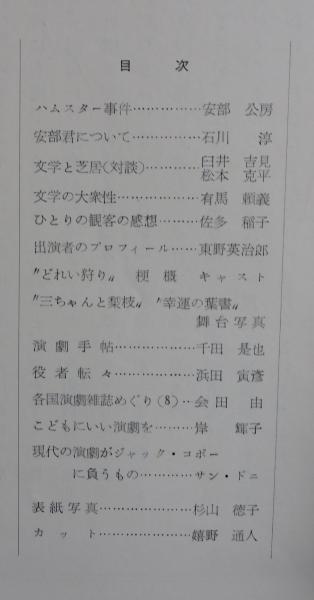 目次
ハムスター事件……………安部 公房
安部君について……………石川 淳
文学と芝居(対談)…………臼井 吉見
松本 克平
文学の大衆性………………有馬 頼義
ひとりの観客の感想………佐多 稲子
出演者のプロフィール……東野英治郎
〝どれい狩り〟 梗概 キャスト
〝三ちゃんと梨枝〟〝幸運の葉書〟
舞台写真
演劇手帖……………………千田 是也
役者転々……………………浜田 寅彦
各国演劇雑誌めぐり(8)‥会田 由
こどもにいい演劇を………岸 輝子
現代の演劇がジャック・コポー
に負うもの…………サン・ドニ
表紙写真……………………杉山 徳子
カット……………………嬉野 通人